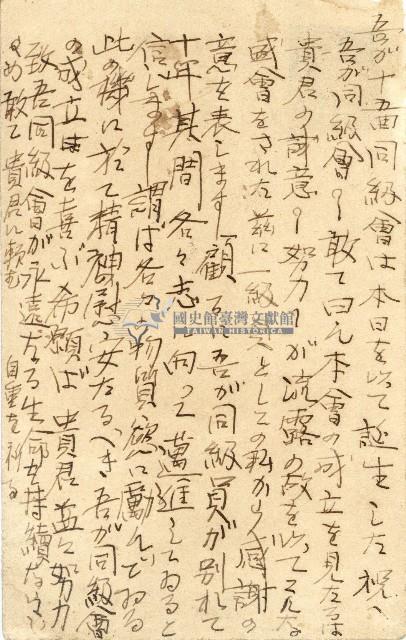 吾が十四同級會は本日を以て誕生した祝へ
吾が同級會を敢て曰ん本會の成立を見たるは
貴君の誠意と努力が流露の故を以てこんな
盛會をされた茲に一級友としての私から感謝の
意を表します顧るに吾が同級員が別れて
十年其間各々志に向って邁進してゐると
信じます謂ば各々物質慾に勵んでゐる
此の様に於て精神慰安たるべき吾が同級會
の成立を喜ぶ希願ば貴君益々努力
致吾同級會が永遠なる生命を持續
め敢て貴君に賴む 自重を祈る
國史館臺灣文獻館
TAIWAN HISTORICA